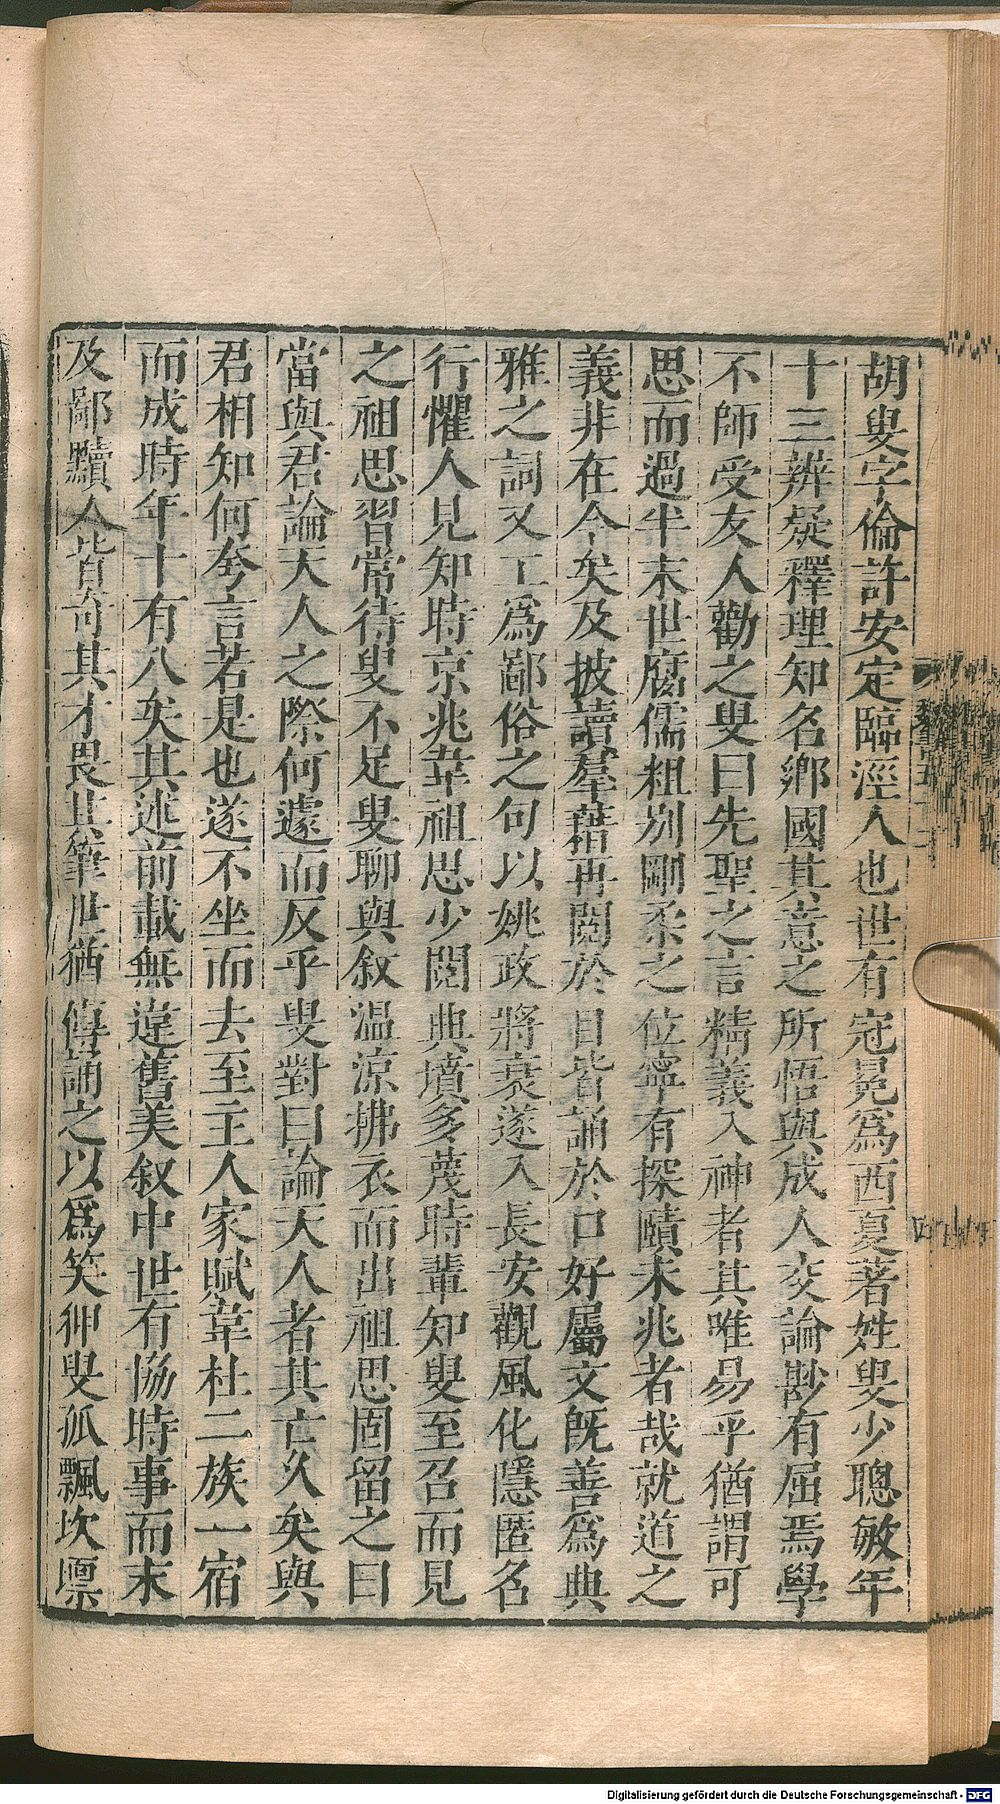 胡叟字倫許安定臨涇人也世有冠冕爲西夏著姓叟少聰敏年
十三辨疑釋理知名鄉國其意之所悟與成人交論尠有屈焉學
不師受友人勸之叟曰先聖之言精義入神者其唯易乎猶謂可
思而過半末世腐儒粗别剛柔之位寧有探賾未兆者哉就道之
義非在今矣及披讀羣籍再閱於目皆誦於口好屬文既善爲典
雅之詞又工爲鄙俗之句以姚政將衰遂入長安觀風化隱匿名
行懼人見知時京兆韋祖思少閱典墳多蔑時輩知叟至召而見
之祖思習常待叟不足叟聊與叙温涼拂衣而出祖思固留之曰
當與君論天人之際何遽而反乎叟對曰論天人者其亡久矣與
君相知何夸言若是也遂不坐而去至主人家賦韋杜二族一宿
而成時年十有八矣其述前載無違舊美叙中世有協時事而末
及鄙黷人皆奇其才畏其筆世猶傳誦之以爲笑狎叟孤飄坎壈
Digitalisierung gefördert durch die Deutsche Forschungsgemeinschaft - DFG